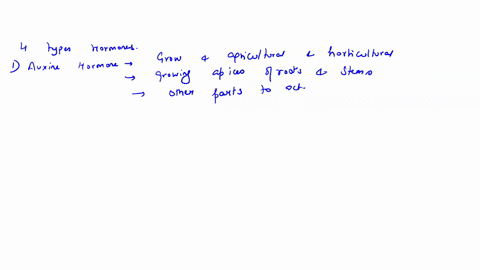 4 types Hormones.
1) Auxine Hormone → Grow & agricultural & horticultural
→ Growing apices of roots & stems
→ other parts to act.